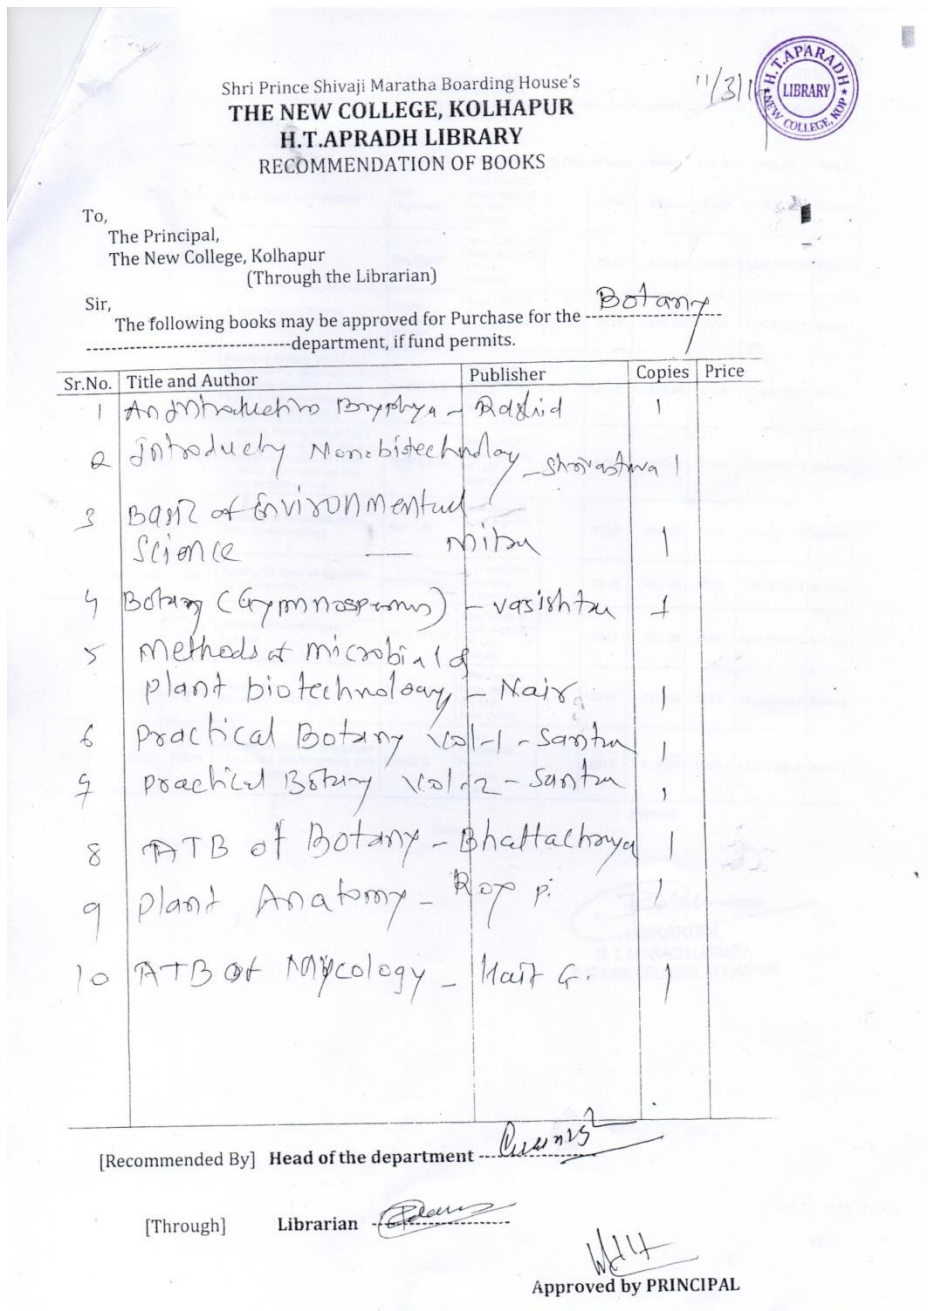 Shri Prince Shivaji Maratha Boarding House's
THE NEW COLLEGE, KOLHAPUR
H.T.APRADH LIBRARY
RECOMMENDATION OF BOOKS
11/3/1
H.T.APARADH
LIBRARY
NEW COLLEGE, KOP
To,
The Principal,
The New College, Kolhapur
(Through the Librarian)
Sir,
The following books may be approved for Purchase for the Botany
department, if fund permits.
Sr.No. Title and Author Publisher Copies Price
1 An - Rashid 1
2 - Shrivastava 1
3 of Environmental
Science — Mitra 1
4 Botany (Gymnosperms) - Vasishta 1
5 Methods of microbial &
plant biotechnology - Nair 1
6 Practical Botany Vol-1 - Santra 1
7 Practical Botany Vol-2 - Santra 1
8 ATB of Botany - Bhattacharya 1
9 Plant Anatomy - Roy P. 1
10 ATB of Mycology - Hait G. 1
[Recommended By] Head of the department
[Through] Librarian
Approved by PRINCIPAL